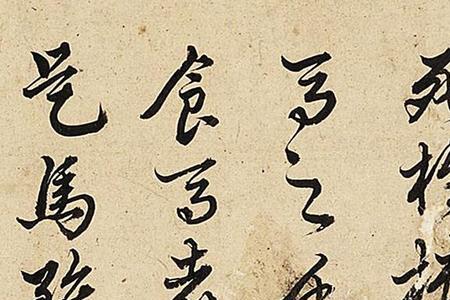 死
馬之千
食馬者
是馬雖